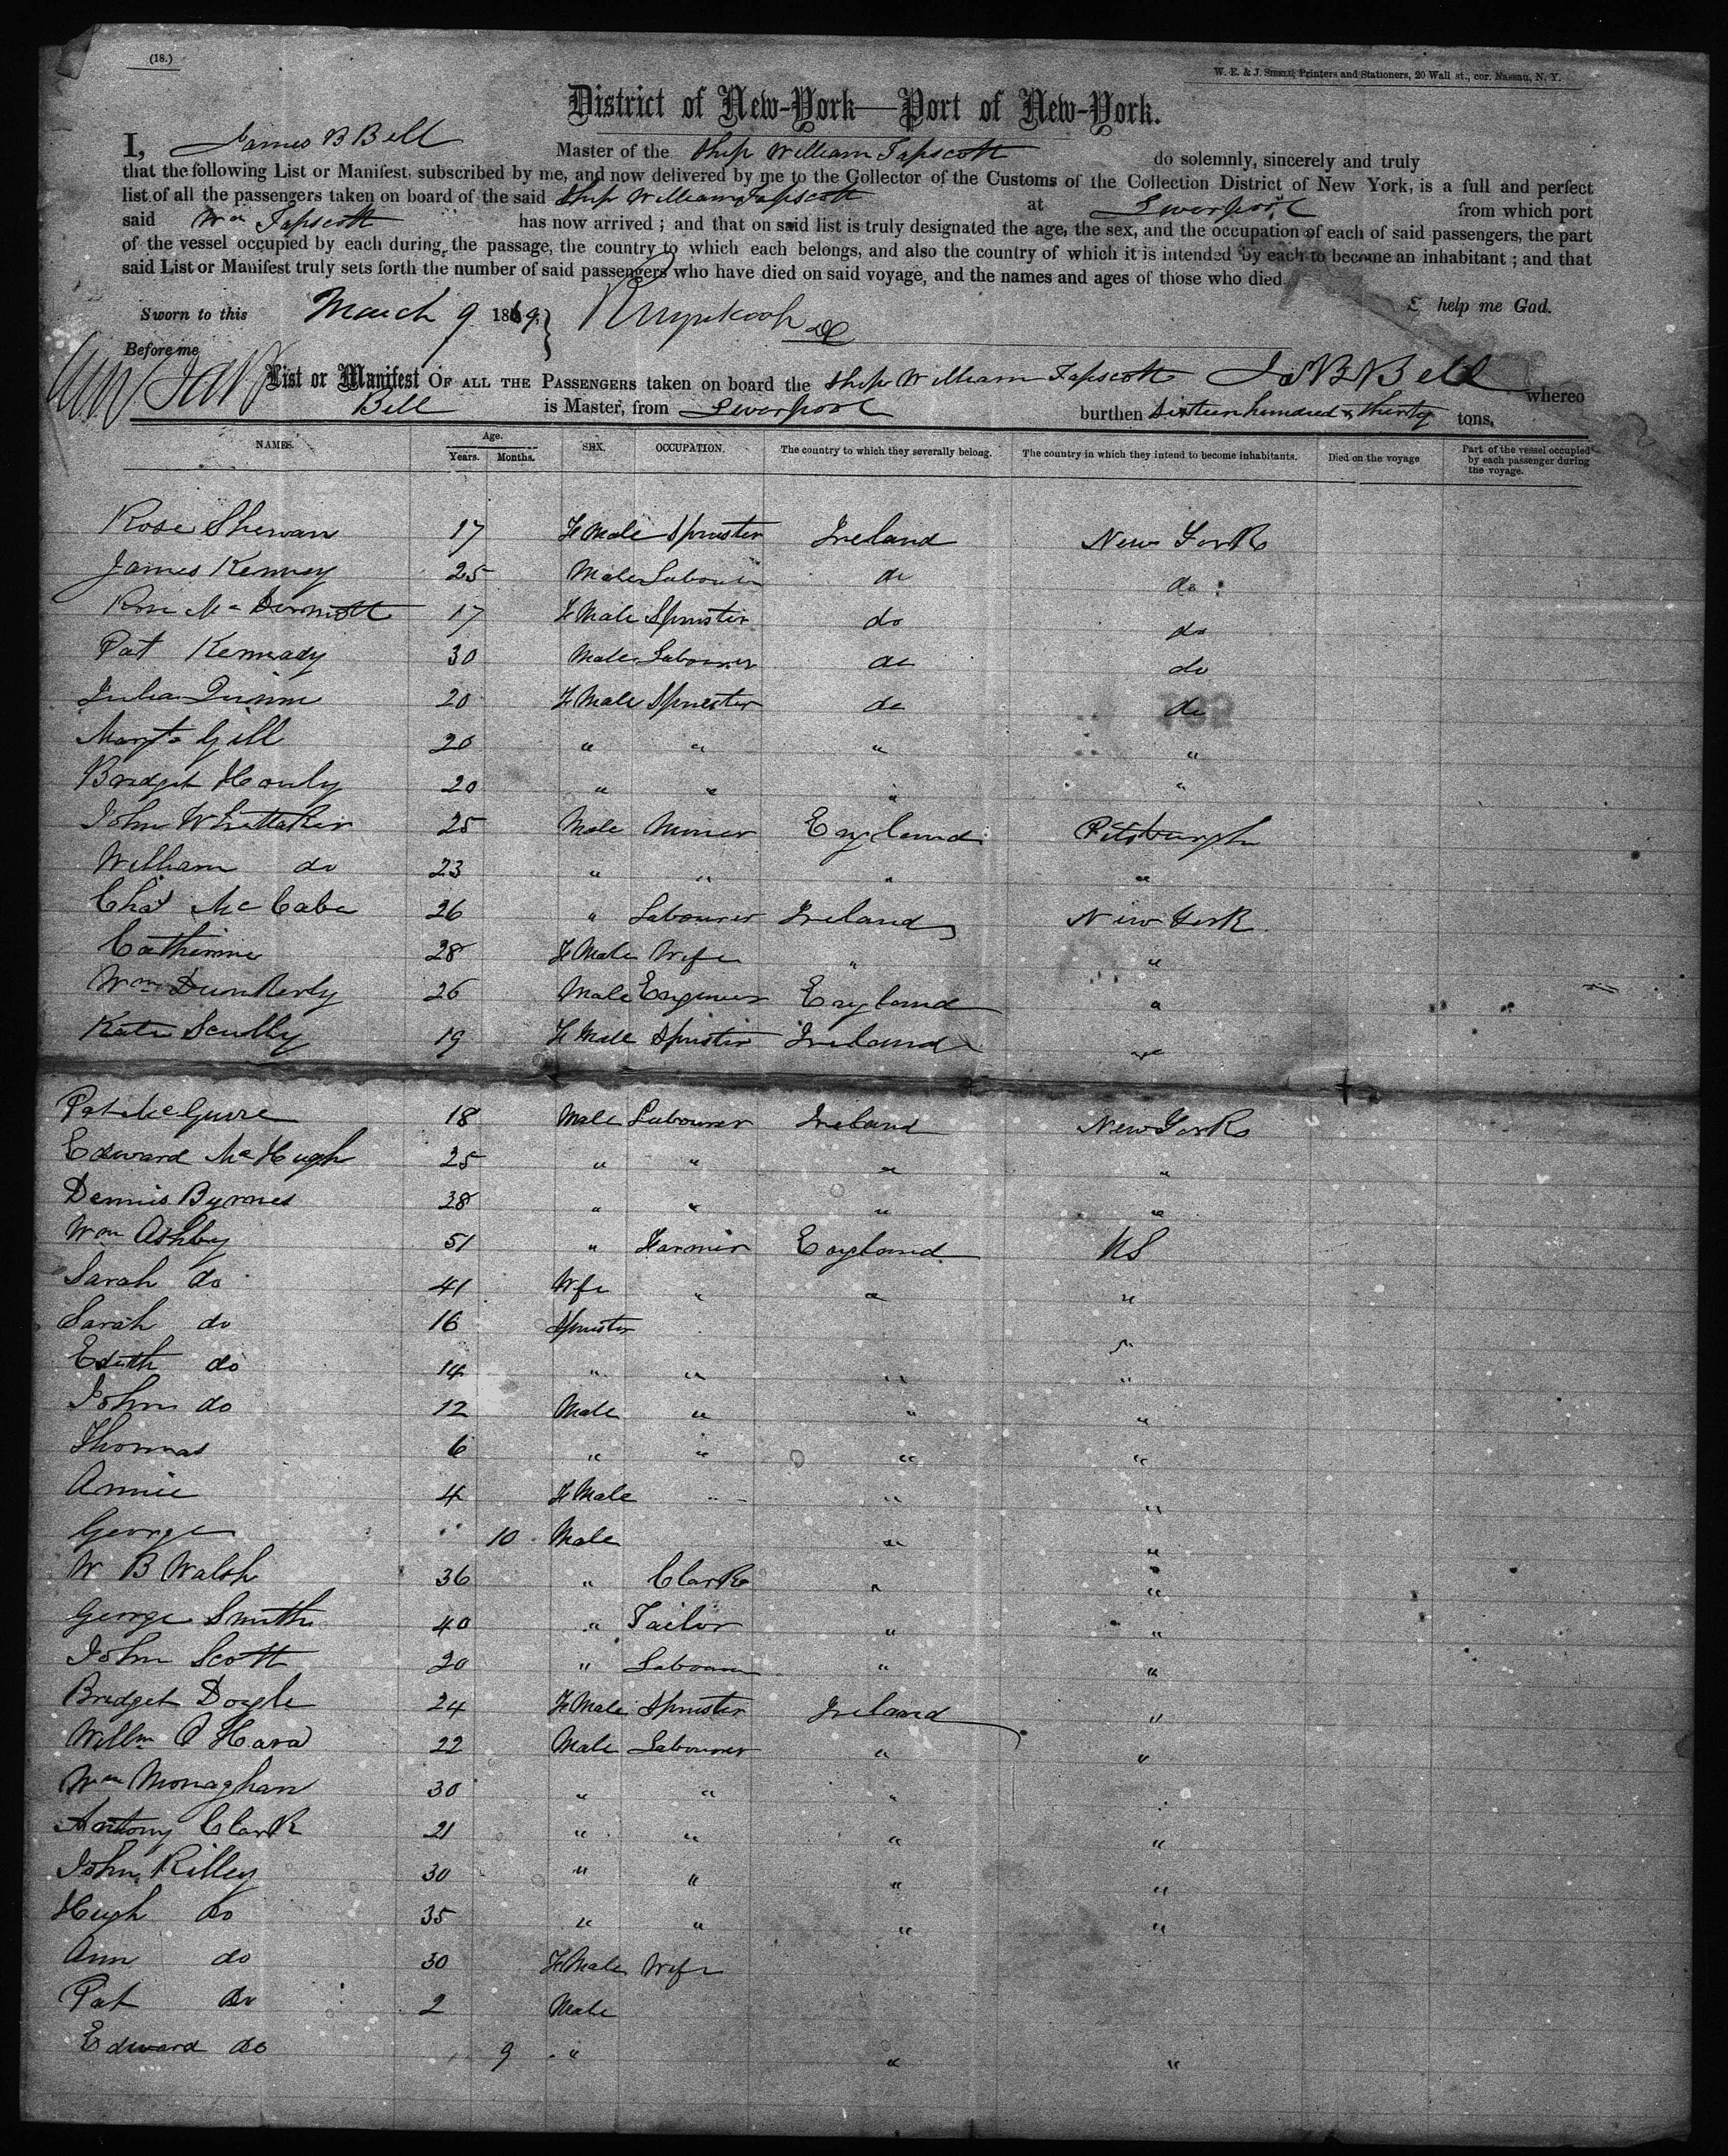 (18.)
W. E. & J. Sibell, Printers and Stationers, 20 Wall st., cor. Nassau, N. Y.
District of New-York—Port of New-York.
I, James B Bell Master of the Ship William Tapscott do solemnly, sincerely and truly
that the following List or Manifest, subscribed by me, and now delivered by me to the Collector of the Customs of the Collection District of New York, is a full and perfect
list of all the passengers taken on board of the said Ship William Tapscott at Liverpool from which port
said Wm Tapscott has now arrived ; and that on said list is truly designated the age, the sex, and the occupation of each of said passengers, the part
of the vessel occupied by each during the passage, the country to which each belongs, and also the country of which it is intended by each to become an inhabitant ; and that
said List or Manifest truly sets forth the number of said passengers who have died on said voyage, and the names and ages of those who died.
help me God.
Sworn to this March 9 1869
Before me
List or Manifest OF ALL THE PASSENGERS taken on board the Ship William Tapscott Js B Bell whereo
Bell is Master, from Liverpool burthen Sixteen hundred & thirty tons.
NAMES. Age. Years. Months. SEX. OCCUPATION. The country to which they severally belong. The country in which they intend to become inhabitants. Died on the voyage Part of the vessel occupied by each passenger during the voyage.
Rose Sherwan 17 FMale Spinster Ireland New York
James Kenney 25 Male Labourer do do
Rose McDermott 17 FMale Spinster do do
Pat Kennady 30 Male Labourer do do
Julia Quinn 20 FMale Spinster do do
Margt Gill 20 " " " "
Bridget Hanly 20 " " " "
John Whittaker 25 Male Miner England Pittsburgh
William do 23 " " " "
Chas McCabe 26 " Labourer Ireland New York
Catherine 28 FMale Wife " "
Wm Dunkerly 26 Male Engineer England "
Kate Scully 19 FMale Spinster Ireland "
Pat McGuire 18 Male Labourer Ireland New York
Edward McHugh 25 " " " "
Dennis Byrnes 28 " " " "
Wm Ashby 51 " Farmer England US
Sarah do 41 Wife " " "
Sarah do 16 Spinster "
Edith do 14 " " " "
John do 12 Male " " "
Thomas 6 " " " "
Annie 4 FMale " " "
George 10 Male " "
W B Walsh 36 " Clarke " "
George Smith 40 " Tailor " "
John Scott 20 " Labourer " "
Bridget Doyle 24 FMale Spinster Ireland "
Willm O Hara 22 Male Labourer " "
Wm Monaghan 30 " " " "
Antony Clark 21 " " " "
John Rilley 30 " " " "
Hugh do 35 " " " "
Ann do 30 FMale Wife
Pat do 2 Male
Edward do 9 " " "